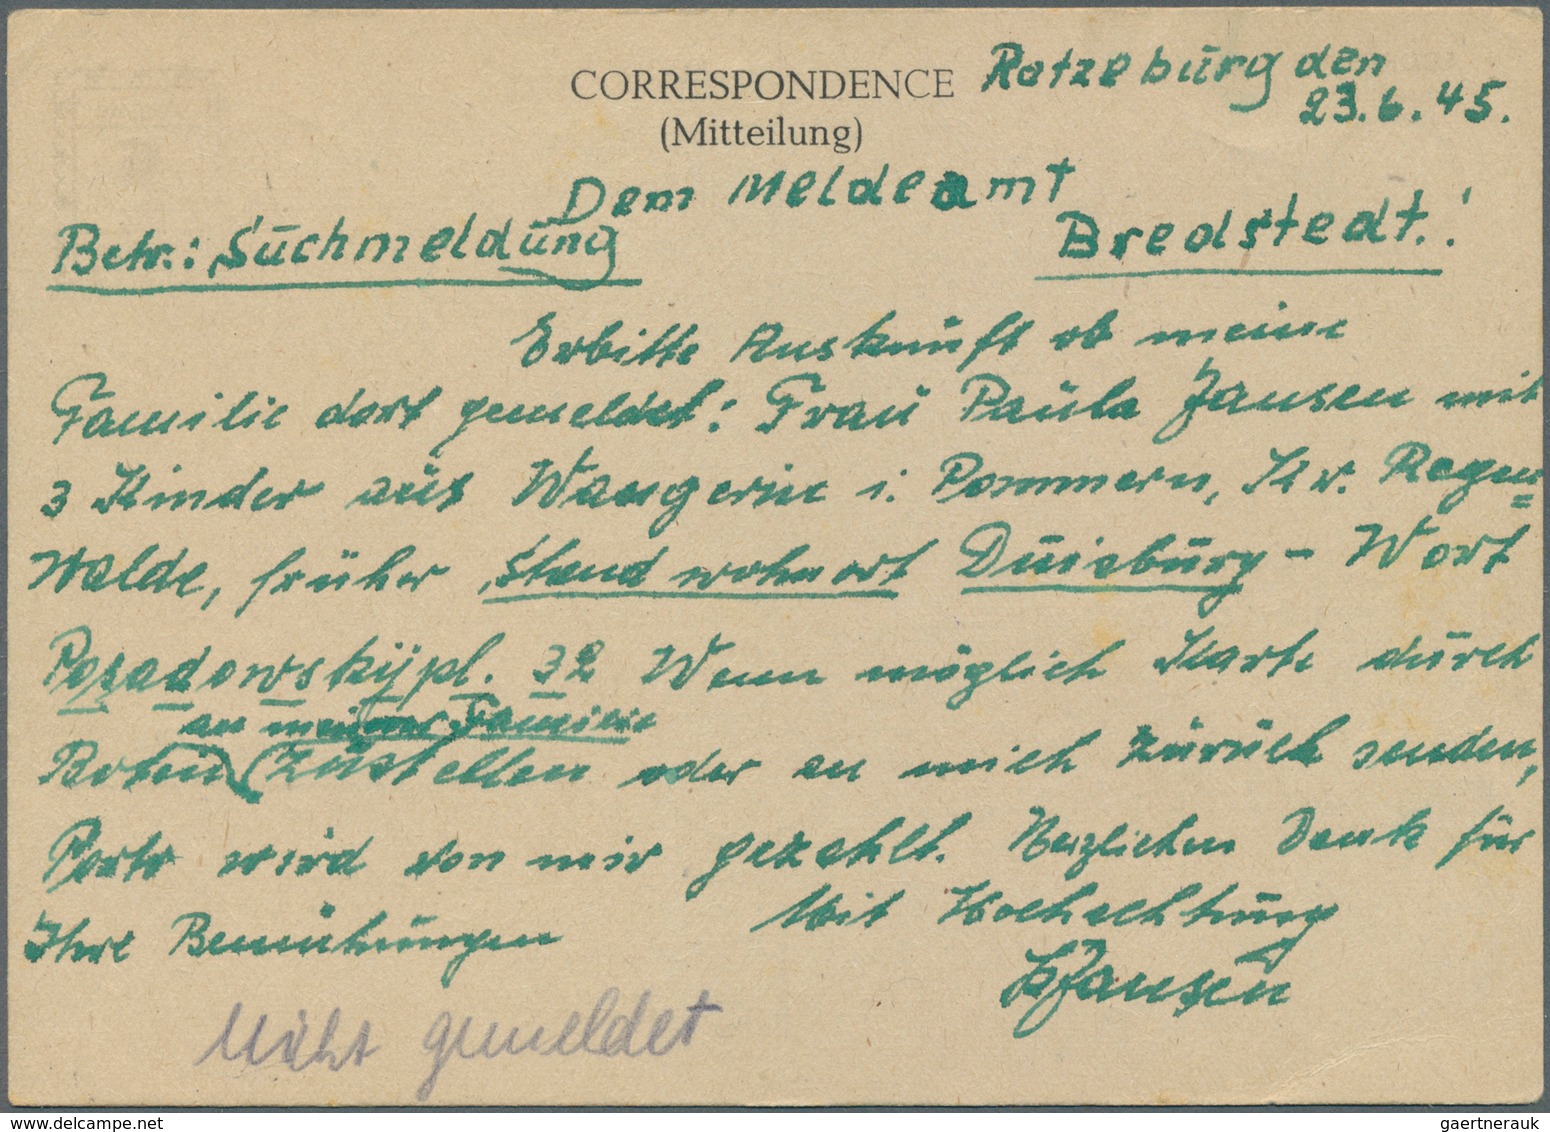 CORRESPONDENCE
(Mitteilung)
Ratzeburg den
23.6.45.
Dem Meldeamt
Bredstedt.!
Betr.: Suchmeldung
Erbitte Auskunft ob meine
Familie dort gemeldet: Frau Paula Jansen mit
3 Kinder aus Wangerin i. Pommern, Kr. Regen=
Walde, früher Stand wohnort Duisburg - Wort
Posadowskypl. 32 Wenn möglich Karte durch
an meine Familie
Boten zustellen oder an mich zurück senden,
Porto wird von mir gezahlt. Herzlichen Dank für
Ihre Bemühungen
Mit Hochachtung
Jansen
Nicht gemeldet
gaertnerauk @ delcampe.net